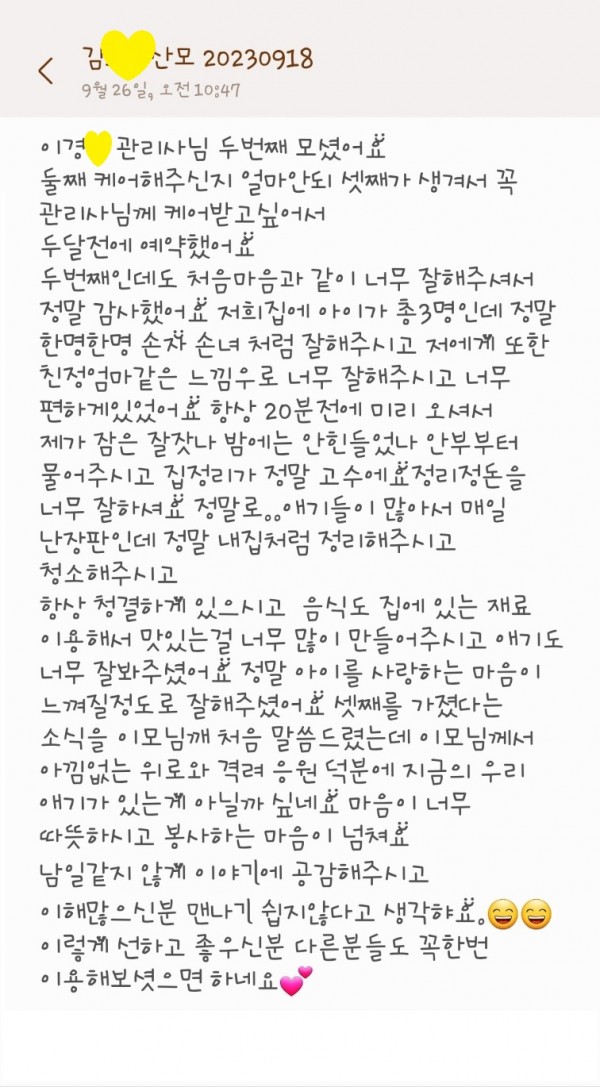 김 산모 20230918
9월 26일, 오전 10:47
이경 관리사님 두번째 모셨어요
둘째 케어해주신지 얼마안되 셋째가 생겨서 꼭
관리사님께 케어받고싶어서
두달전에 예약했어요
두번째인데도 처음마음과 같이 너무 잘해주셔서
정말 감사했어요 저희집에 아이가 총3명인데 정말
한명한명 손자 손녀 처럼 잘해주시고 저에게 또한
친정엄마같은 느낌우로 너무 잘해주시고 너무
편하게있었어요 항상 20분전에 미리 오셔서
제가 잠은 잘잣나 밤에는 안힌들었나 안부부터
물어주시고 집정리가 정말 고수에요정리정돈을
너무 잘하셔요 정말로..애기들이 많아서 매일
난장판인데 정말 내집처럼 정리해주시고
청소해주시고
항상 청결하게 있으시고 음식도 집에 있는 재료
이용해서 맛있는걸 너무 많이 만들어주시고 애기도
너무 잘봐주셨어요 정말 아이를 사랑하는 마음이
느껴질정도로 잘해주셨어요 셋째를 가졌다는
소식을 이모님깨 처음 말씀드렸는데 이모님께서
아낌없는 위로와 격려 응원 덕분에 지금의 우리
애기가 있는게 아닐까 싶네요 마음이 너무
따뜻하시고 봉사하는 마음이 넘쳐요
남일같지 않게 이야기에 공감해주시고
이해많으신분 맨나기 쉽지않다고 생각햐요.😄😄
이렇게 선하고 좋우신분 다른분들도 꼭한번
이용해보셧으면 하네요💕